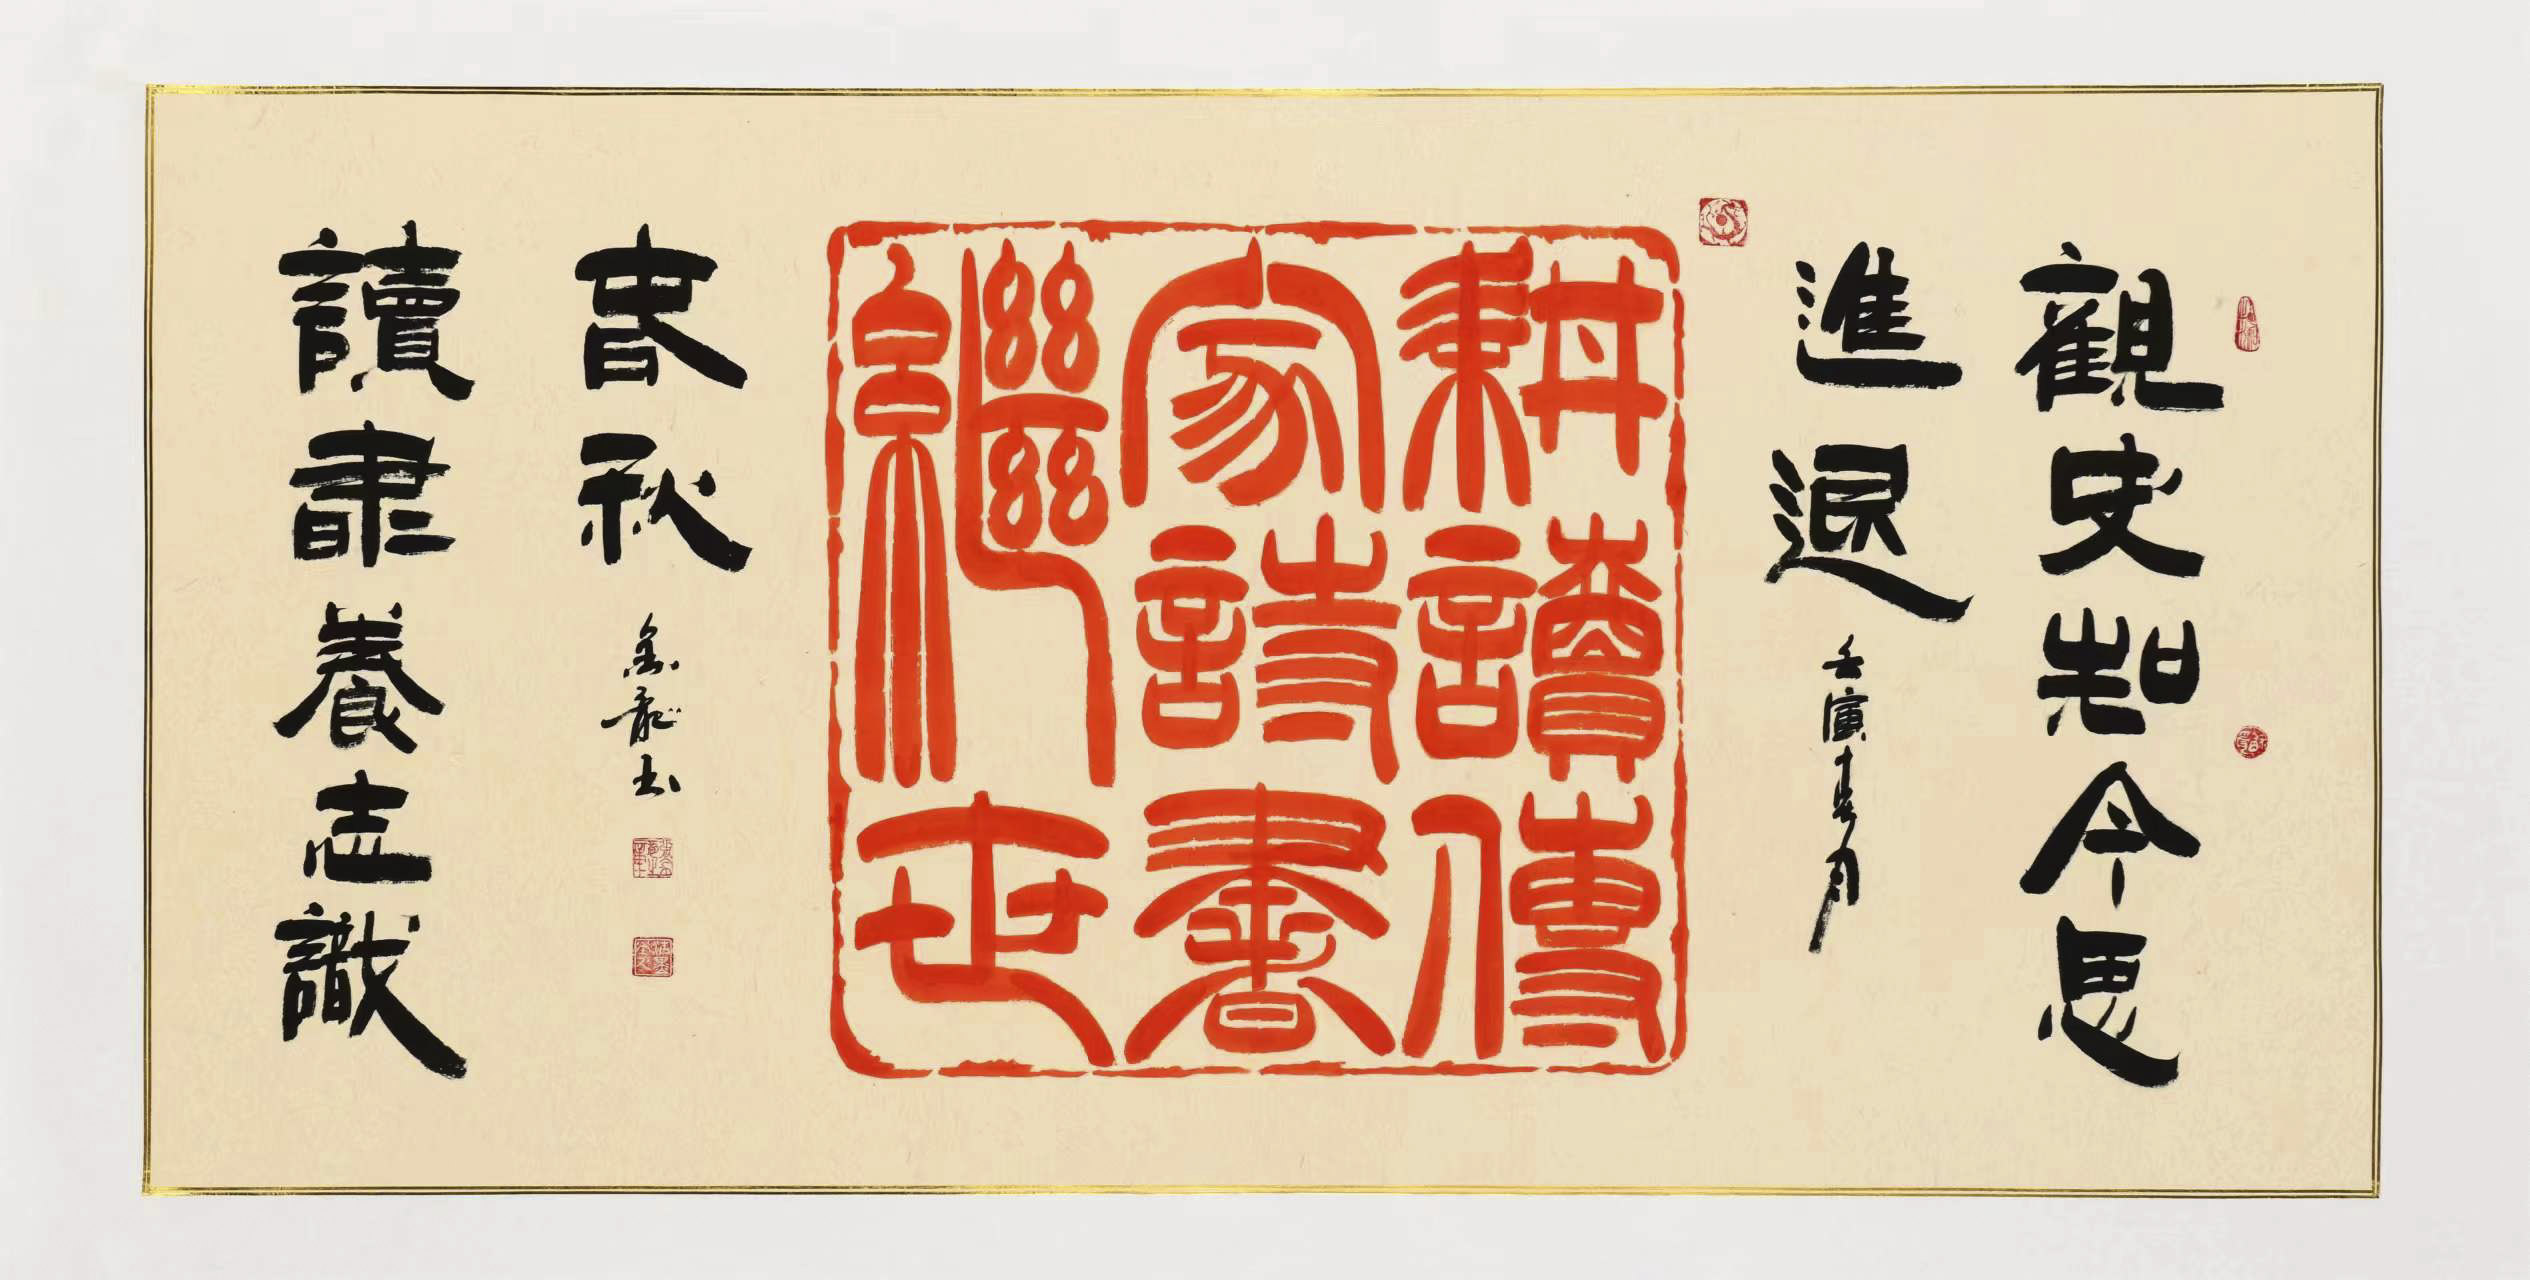 觀史知今思
進退
壬寅春月
耕讀傳
家詩書
繼世
讀書養志識
春秋
金龍书